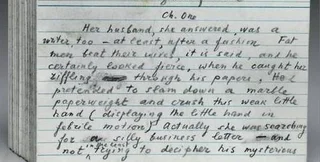 Ch. One
Her husband, she answered, was a
writer, too — at least, after a fashion. Fat
men beat their wives, it is said, and he
certainly looked fierce, when he caught her
riffling through his papers. He
pretended to slam down a marble
paperweight and crush this weak little
hand (displaying the little hand in
febrile motion) Actually she was searching
for a silly business letter — and
not in the least trying to decipher his mysterious